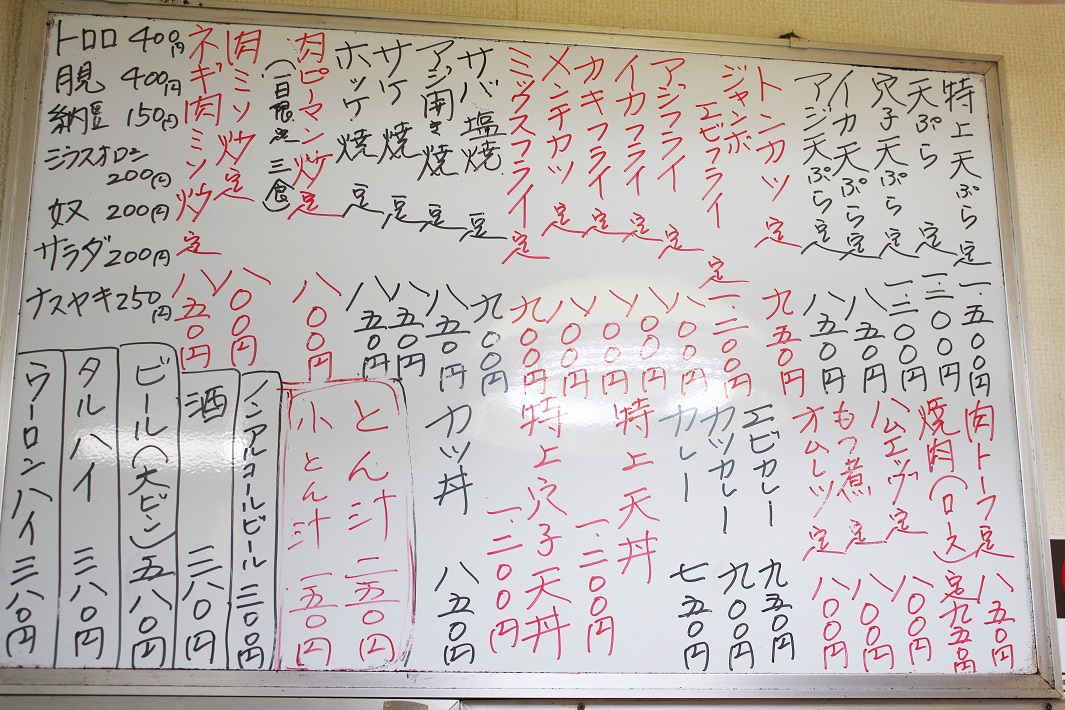 特上天ぷら定 一.五〇〇円
天ぷら定 一.二〇〇円
穴子天ぷら定 一.二〇〇円
イカ天ぷら定 八五〇円
アジ天ぷら定 八五〇円
トンカツ定 九五〇円
ジャンボ
エビフライ定 一.二〇〇円
アジフライ定 八〇〇円
イカフライ定 八〇〇円
カキフライ定 八〇〇円
メンチカツ定 八〇〇円
ミックスフライ定 九〇〇円
サバ塩焼定 九〇〇円
アジ開き焼定 八五〇円
サケ焼定 八五〇円
ホッケ焼定 八五〇円
肉ピーマン炒定 八〇〇円
(一日限定三食)
肉ミソ炒定 八〇〇円
ネギ肉ミソ炒定 八五〇円
トロロ 400円
月見 400円
納豆 150円
シラスオロシ
200円
奴 200円
サラダ 200円
ナスヤキ 250円
肉トーフ定 八五〇円
焼肉(ロース)定 九五〇円
ハムエッグ定 八〇〇円
もつ煮定 八〇〇円
オムレツ定 八〇〇円
エビカレー 九五〇円
カツカレー 九〇〇円
カレー 七五〇円
特上天丼 一.二〇〇円
特上穴子天丼 一.二〇〇円
カツ丼 八五〇円
とん汁 二五〇円
小とん汁 一五〇円
ノンアルコールビール 三〇〇円
酒 三八〇円
ビール(大ビン) 五八〇円
タルハイ 三八〇円
ウーロンハイ 三八〇円